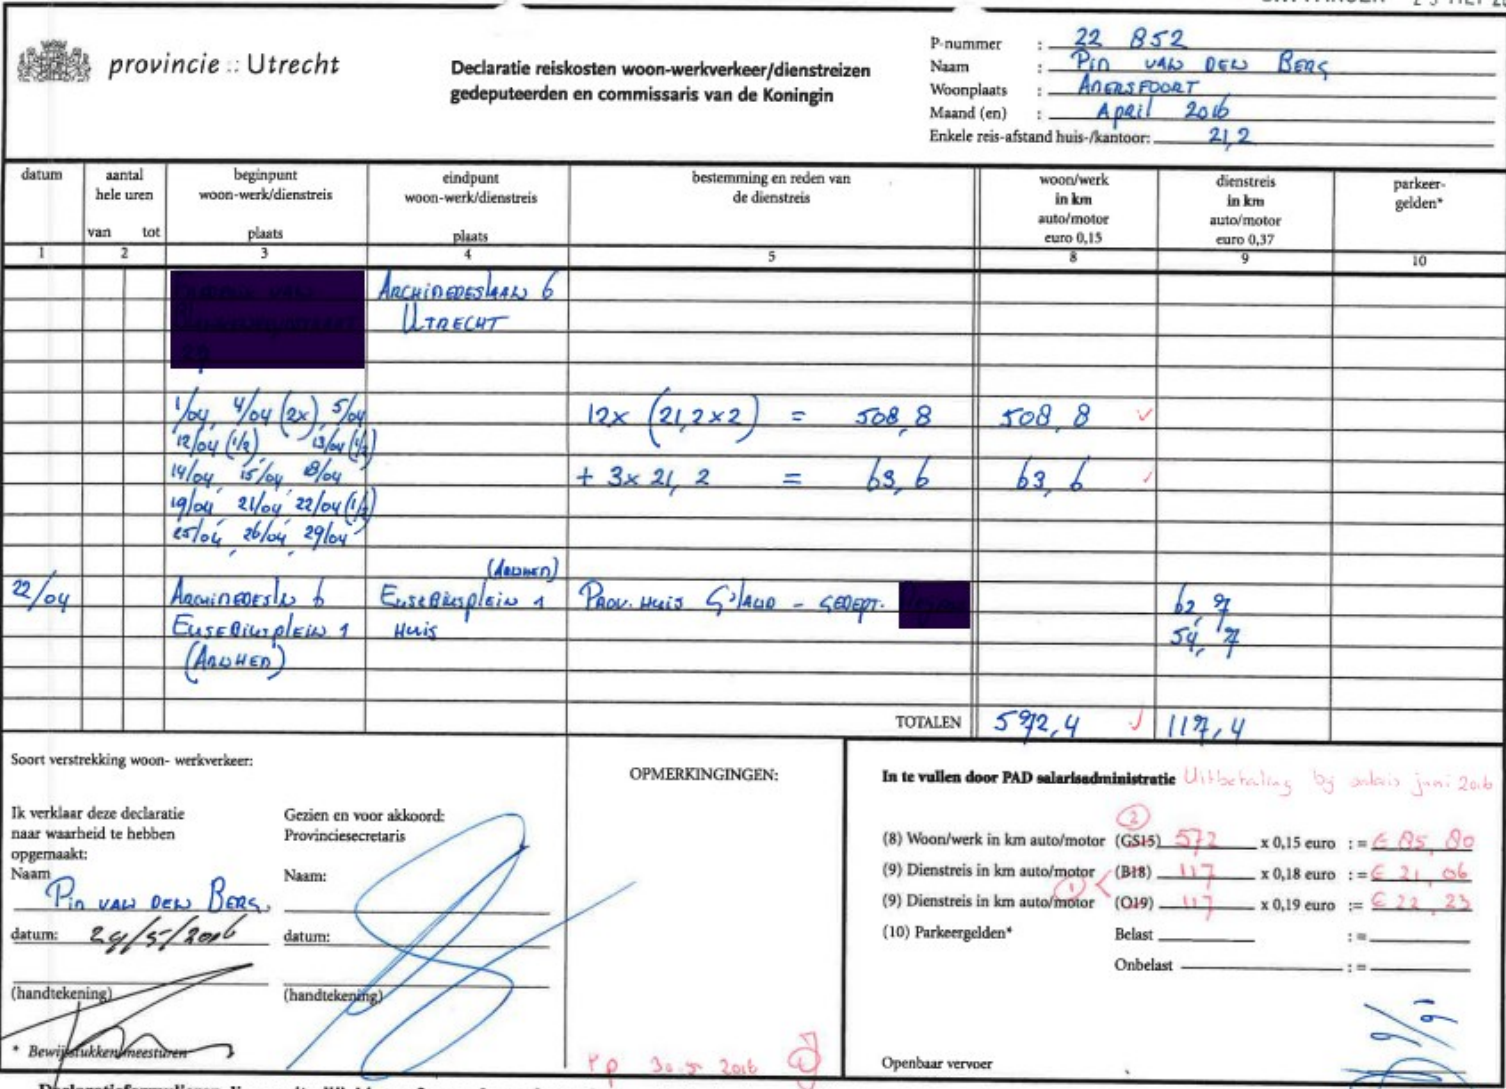 provincie :: Utrecht
Declaratie reiskosten woon-werkverkeer/dienstreizen
gedeputeerden en commissaris van de Koningin
P-nummer : 22 852
Naam : Pim van den Berg
Woonplaats : Amersfoort
Maand (en) : April 2016
Enkele reis-afstand huis-/kantoor: 21,2
datum
aantal hele uren
van tot
beginpunt woon-werk/dienstreis
plaats
eindpunt woon-werk/dienstreis
plaats
bestemming en reden van de dienstreis
woon/werk in km auto/motor euro 0,15
dienstreis in km auto/motor euro 0,37
parkeer-gelden*
1 2 3 4 5 8 9 10
Archimedeslaan 6
Utrecht
1/04, 4/04 (2x), 5/04 12x (21,2x2) = 508,8 508,8
12/04 (1/2), 13/04 (1/2)
14/04, 15/04, 18/04 + 3x 21,2 = 63,6 63,6
19/04, 21/04, 22/04 (1/2)
25/04, 26/04, 29/04
(Arnhem)
22/04 Archimedesln 6 Eusebiusplein 1 Prov. Huis G'land - gedept. 62,7
Eusebiusplein 1 Huis 54,7
(Arnhem)
TOTALEN 572,4 117,4
Soort verstrekking woon- werkverkeer:
Ik verklaar deze declaratie
naar waarheid te hebben
opgemaakt:
Naam
Pim van den Berg
datum: 24/5/2016
(handtekening)
* Bewijsstukken meesturen
Gezien en voor akkoord:
Provinciesecretaris
Naam:
datum:
(handtekening)
OPMERKINGINGEN:
30.5 2016
In te vullen door PAD salarisadministratie Uitbetaling bij salaris juni 2016
2
(8) Woon/werk in km auto/motor (GS15) 572 x 0,15 euro := € 85,80
(9) Dienstreis in km auto/motor (B18) 117 x 0,18 euro := € 21,06
1
(9) Dienstreis in km auto/motor (O19) 117 x 0,19 euro := € 22,23
(10) Parkeergelden* Belast :=
Onbelast :=
Openbaar vervoer